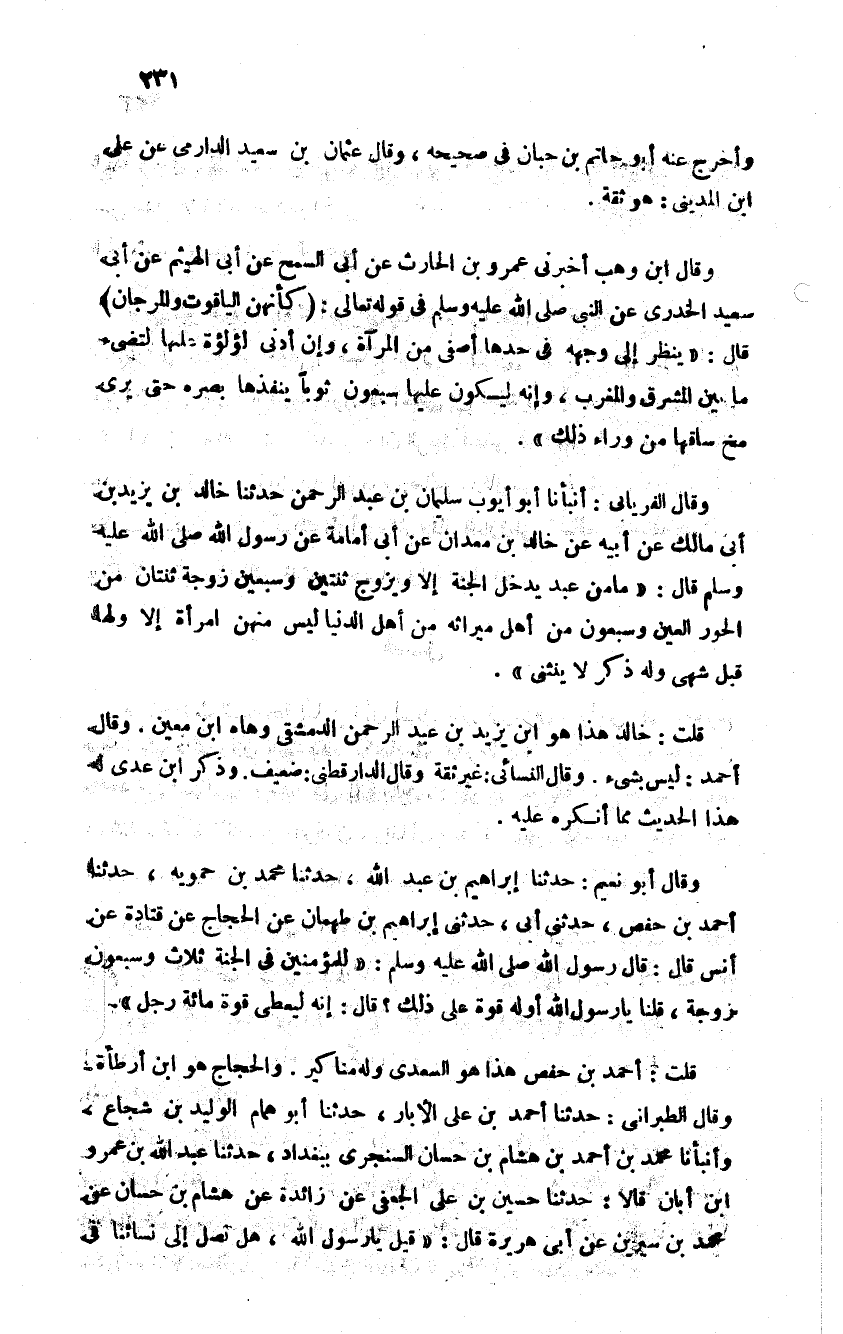 ٢٣١
وأخرج عنه أبو حاتم بن حبان فى صحيحه ، وقال عثمان بن سعيد الدارمى عن على
ابن المدينى : هو ثقة .
وقال ابن وهب أخبرنى عمرو بن الحارث عن أبى السمح عن أبى الهيثم عن أبى
سعيد الخدرى عن النبى صلى الله عليه وسلم فى قوله تعالى : ( كأنهن الياقوت والمرجان )
قال : « ينظر إلى وجهه فى خدها أصفى من المرآة ، وإن أدنى لؤلؤة عليها لتضىء
ما بين المشرق والمغرب ، وإنه ليكون عليها سبعون ثوباً ينفذها بصره حتى يرى
مخ ساقها من وراء ذلك » .
وقال الفريابى : أنبأنا أبو أيوب سليمان بن عبد الرحمن حدثنا خالد بن يزيد بن
أبى مالك عن أبيه عن خالد بن معدان عن أبى أمامة عن رسول الله صلى الله عليه
وسلم قال : « مامن عبد يدخل الجنة إلا ويزوج ثنتين وسبعين زوجة ثنتان من
الحور العين وسبعون من أهل ميراثه من أهل الدنيا ليس منهن امرأة إلا ولها
قبل شهى وله ذكر لا ينثنى » .
قلت : خالد هذا هو ابن يزيد بن عبد الرحمن الدمشقى وهاه ابن معين . وقال
أحمد : ليس بشىء . وقال النسائى : غير ثقة وقال الدارقطنى : ضعيف . وذكر ابن عدى له
هذا الحديث مما أنكره عليه .
وقال أبو نعيم : حدثنا إبراهيم بن عبد الله ، حدثنا محمد بن حمويه ، حدثنا
أحمد بن حفص ، حدثنى أبى ، حدثنى إبراهيم بن طهمان عن الحجاج عن قتادة عن
أنس قال : قال رسول الله صلى الله عليه وسلم : « للمؤمنين فى الجنة ثلاث وسبعون
زوجة ، قلنا يارسول الله أوله قوة على ذلك ؟ قال : إنه ليعطى قوة مائة رجل » .
قلت : أحمد بن حفص هذا هو السعدى وله مناكير . والحجاج هو ابن أرطأة .
وقال الطبرانى : حدثنا أحمد بن على الأبار ، حدثنا أبو همام الوليد بن شجاع ،
وأنبأنا محمد بن أحمد بن هشام بن حسان السنجرى ببغداد ، حدثنا عبد الله بن عمرو
ابن أبان قالا : حدثنا حسين بن على الجعفى عن زائدة عن هشام بن حسان عن
محمد بن سيرين عن أبى هريرة قال : « قيل يارسول الله ، هل نصل إلى نسائنا فى